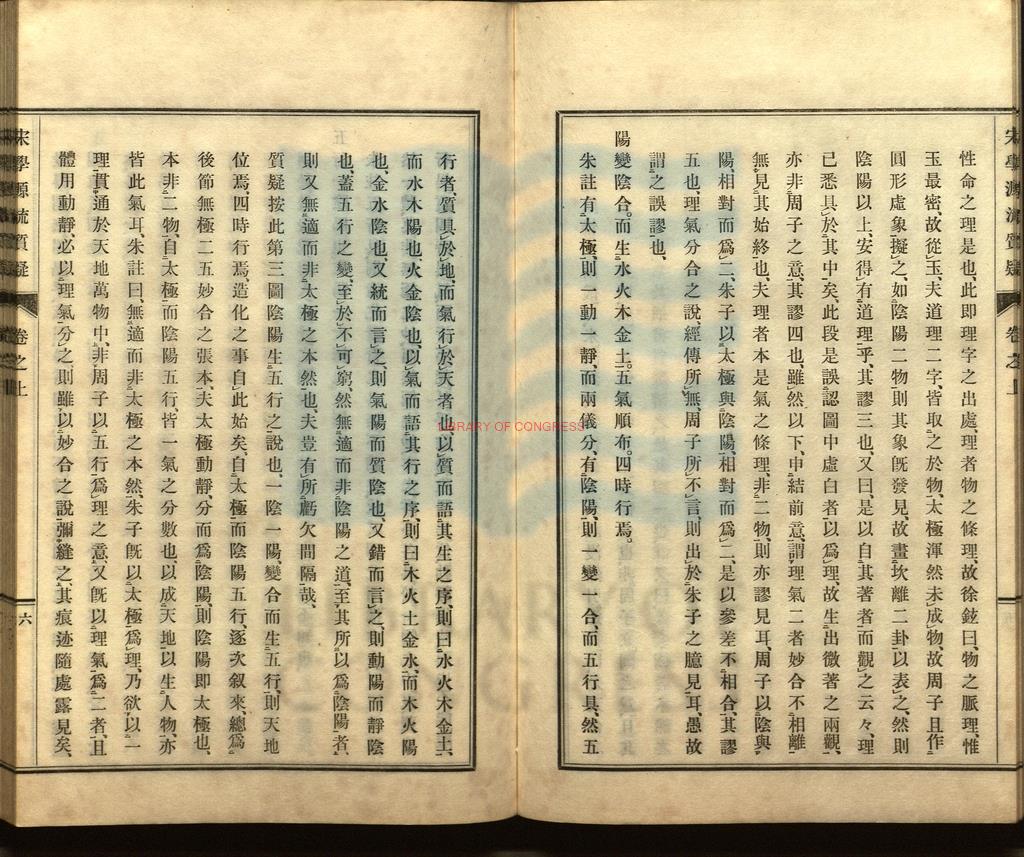 性命之理是也、此即理字之出處、理者物之條理、故徐鉉曰、物之脈理、惟
玉最密、故從玉、夫道理二字、皆取之於物、太極渾然未成物、故周子且作
圓形虛象擬之、如陰陽二物則其象既發見、故畫坎離二卦以表之、然則
陰陽以上、安得有道理乎、其謬三也、又曰、是以自其著者而觀之云々、理
已悉具於其中矣、此段是誤認圖中虛白者以爲理、故生出微著之兩觀、
亦非周子之意、其謬四也、雖然以下、申結前意、謂理氣二者妙合不相離、
無見其始終也、夫理者本是氣之條理、非二物、則亦謬見耳、周子以陰與
陽、相對而爲二、朱子以太極與陰陽、相對而爲二、是以參差不相合、其謬
五也、理氣分合之說、經傳所無、周子所不言、則出於朱子之臆見耳、愚故
謂之誤謬也、
陽變陰合。而生水火木金土。五氣順布。四時行焉。
朱註有太極、則一動一靜、而兩儀分、有陰陽、則一變一合、而五行具、然五
宋學源流質疑 卷之上
行者、質具於地、而氣行於天者也、以質而語其生之序、則曰水火木金土、
而水木陽也、火金陰也、以氣而語其行之序、則曰木火土金水、而木火陽
也、金水陰也、又統而言之、則氣陽而質陰也、又錯而言之、則動陽而靜陰
也、蓋五行之變、至於不可窮、然無適而非陰陽之道、至其所以爲陰陽者、
則又無適而非太極之本然也、夫豈有所虧欠間隔哉、
質疑按此第三圖陰陽生五行之說也、一陰一陽、變合而生五行、則天地
位焉、四時行焉、造化之事自此始矣、自太極而陰陽五行、逐次叙來、總爲
後節無極二五妙合之張本、夫太極動靜、分而爲陰陽、則陰陽即太極也、
本非二物、自太極而陰陽五行、皆一氣之分數也、以成天地、以生人物、亦
皆此氣耳、朱註曰、無適而非太極之本然、朱子既以太極爲理、乃欲以一
理貫通於天地萬物中、非周子以五行爲理之意、又既以理氣爲二者、且
體用動靜、必以理氣分之、則雖以妙合之說彌縫之、其痕迹隨處露見矣、
宋學源流質疑 卷之上 六
LIBRARY OF CONGRESS